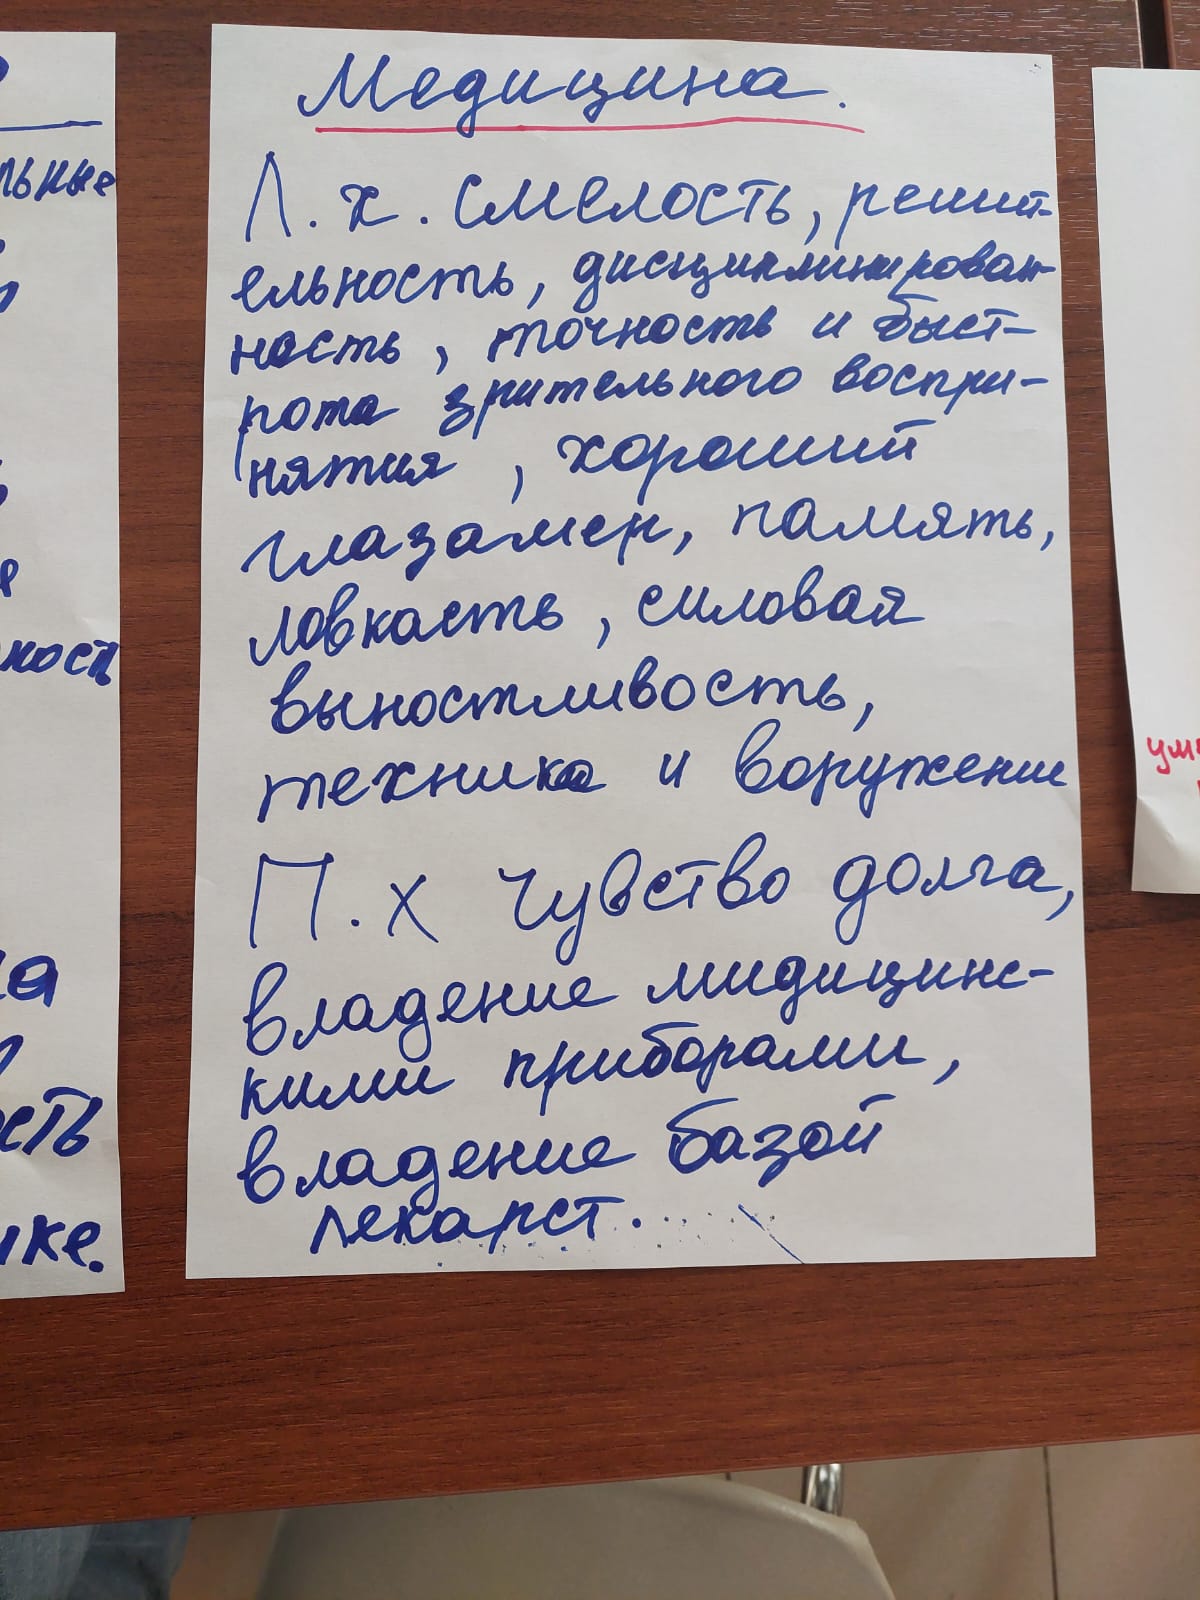 Медицина.
Л. х. смелость, решит-
ельность, дисциплинирован-
ность, точность и быст-
рота зрительного воспри-
нятия, хороший
глазамер, память,
ловкасть, силовая
выностливость,
техника и воружение
П. х Чувство долга,
владение мидицинс-
кими приборами,
владение базой
лекарст.
льные
ность
ость
ике.